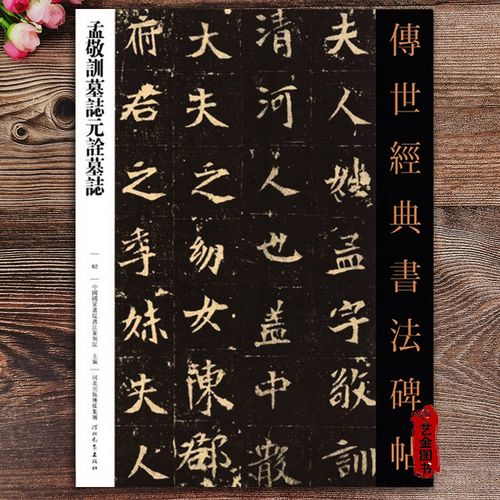 傳世經典書法碑帖
夫人姓孟字敬訓
清河人也蓋中散
大夫之幼女陳郡
府君之季妹夫人
孟敬訓墓誌元詮墓誌
82
中國國家畫院書法篆刻院 主編
河北出版傳媒集團
河北教育出版社
艺金图书